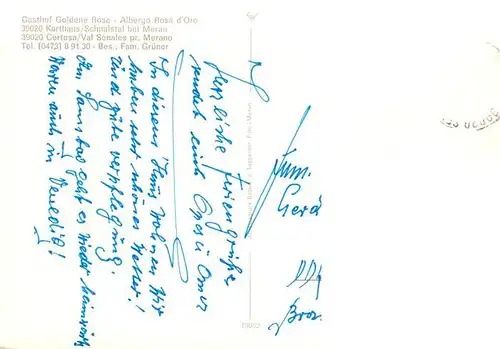 Gasthof Goldene Rose - Albergo Rosa d'Oro
39020 Karthaus/Schnalstal bei Meran
39020 Certosa/Val Senales pr. Merano
Tel. (0473) 8 91 30 - Bes., Fam. Grüner
Herzliche Feriengrüße
sendet euch Opa u Oma
In diesem Haus wohnen wir
haben sehr schönes Wetter!
und gute Verpflegung.
Am Samstag geht es wieder heimwärts
Waren auch in Venedig!
Fam.
Gerd